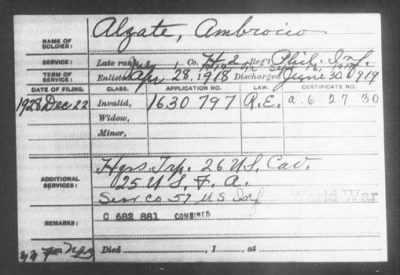 NAME OF SOLDIER: Alzate, Ambrocio
SERVICE: Late rank, Co. H 2 Reg't Phil. Inf.
TERM OF SERVICE: Enlisted Apr 28, 1918 Discharged June 30 1919
DATE OF FILING. CLASS. APPLICATION NO. LAW. CERTIFICATE NO.
1928 Dec. 22 Invalid, 1630 797 R.E. a 6 27 30
Widow,
Minor,
Hqrs. Trp. 26 U.S. Cav.
ADDITIONAL SERVICES: 25 U.S. F. A.
Serv Co 57 U.S Inf World War
REMARKS: C 682 881 COMBINED
Died , 1 , at